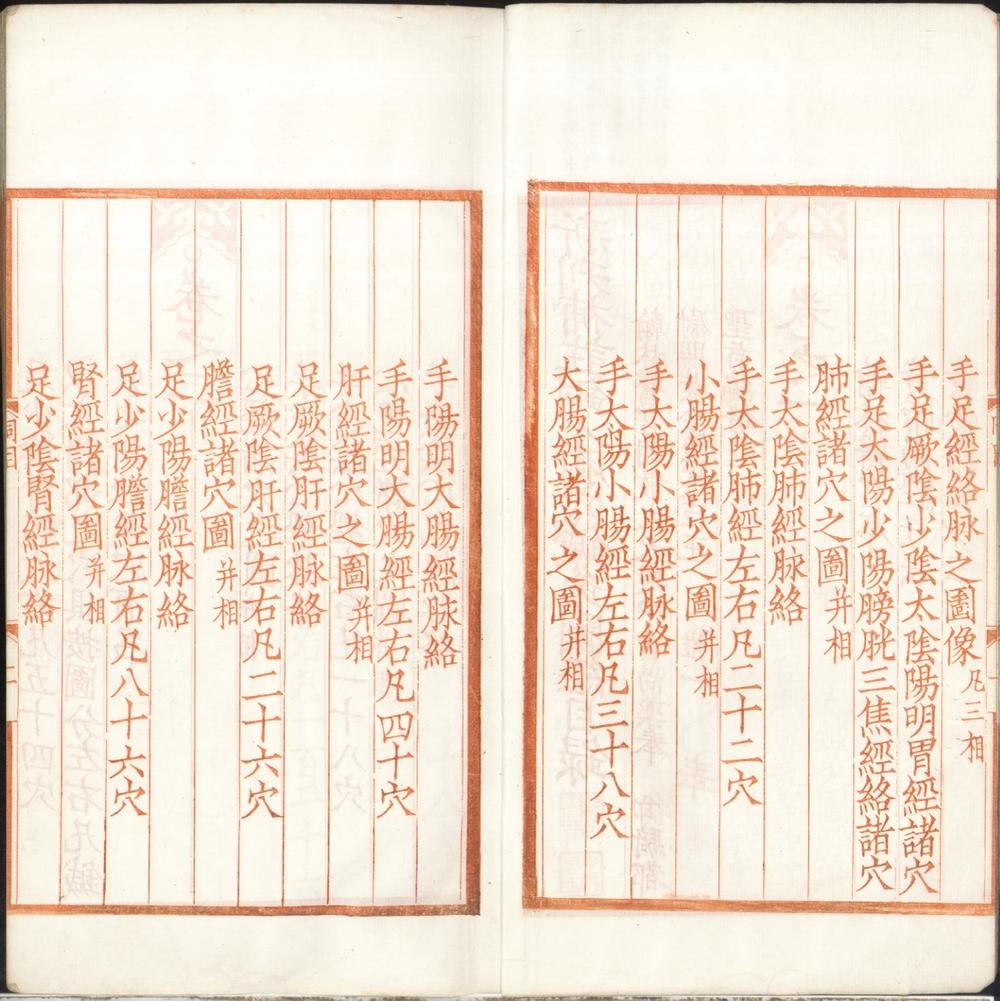 手足經絡脉之圖像 凡三相
手足厥陰少陰太陰陽明胃經諸穴
手足太陽少陽膀胱三焦經絡諸穴
肺經諸穴之圖 并相
手太陰肺經脉絡
手太陰肺經左右凡二十二穴
小腸經諸穴之圖 并相
手太陽小腸經脉絡
手太陽小腸經左右凡三十八穴
大腸經諸穴之圖 并相
手陽明大腸經脉絡
手陽明大腸經左右凡四十穴
肝經諸穴之圖 并相
足厥陰肝經脉絡
足厥陰肝經左右凡二十六穴
膽經諸穴圖 并相
足少陽膽經脉絡
足少陽膽經左右凡八十六穴
腎經諸穴圖 并相
足少陰腎經脉絡